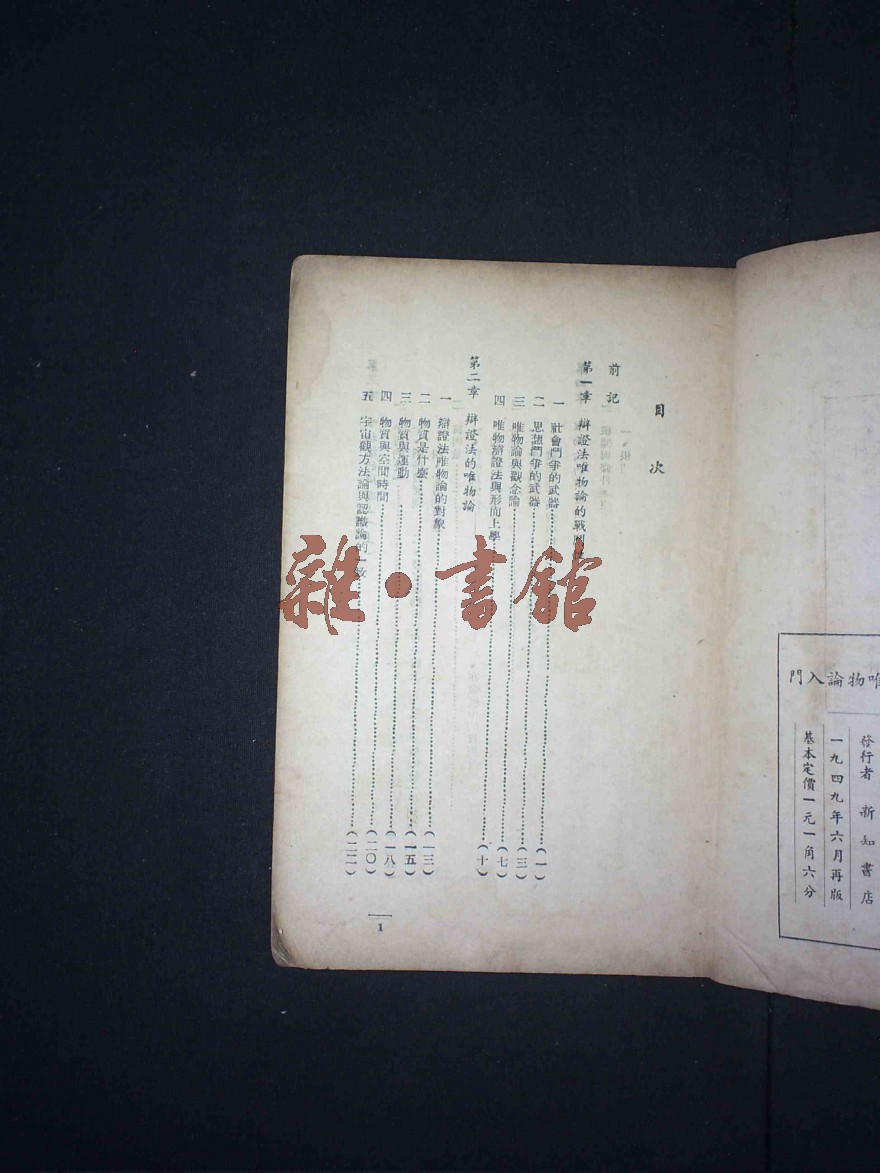 唯物論入門
發行者 新知書店
一九四九年六月再版
基本定價一元一角六分
目次
前記
第一章 辯證法唯物論的戰鬥
一 社會鬥爭的武器(一)
二 思想鬥爭的武器(三)
三 唯物論與觀念論(七)
四 唯物辯證法與形而上學(十)
第二章 辯證法的唯物論
一 辯證法唯物論的對象(一三)
二 物質是什麼(一五)
三 物質與運動(一八)
四 物質與空間時間(二〇)
五 宇宙觀方法論與認識論的一致(二二)
1
雜·書館